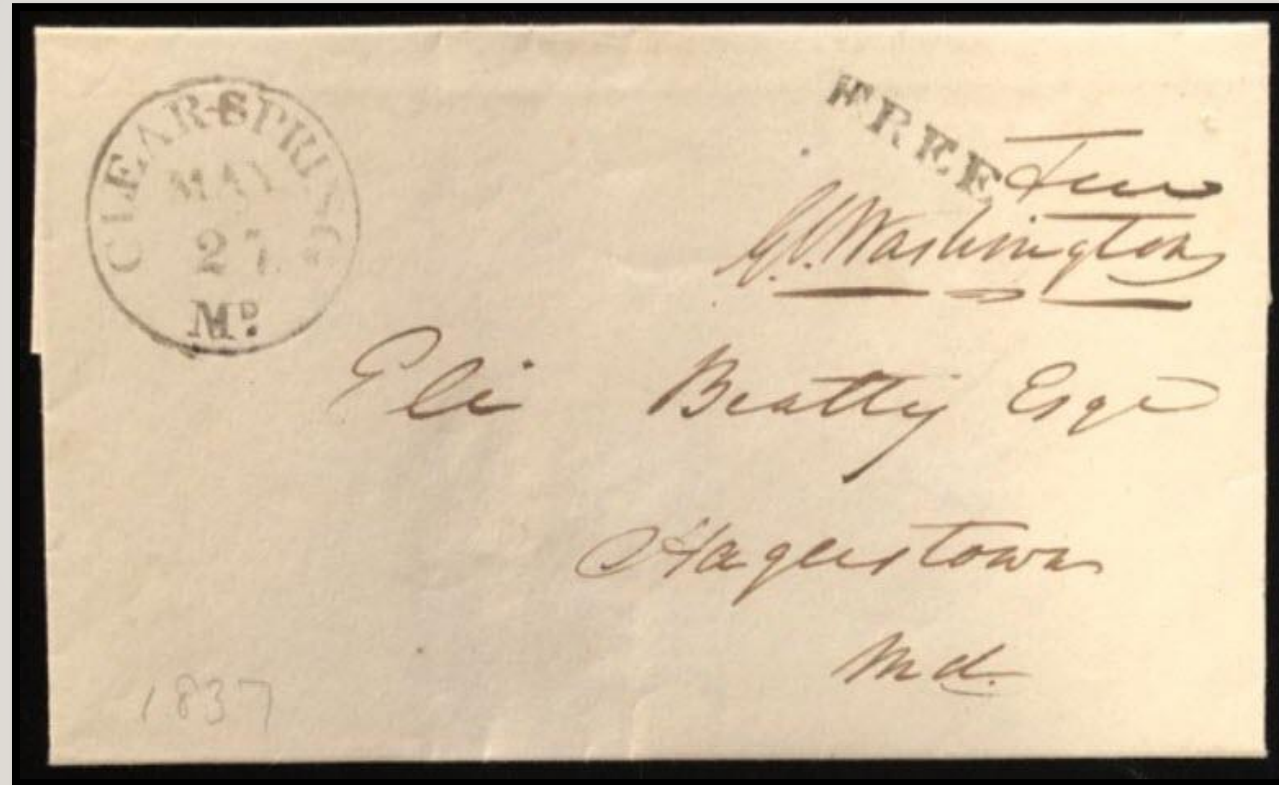 CLEAR-SPRING
MAY
27
MD.
FREE
Free
G.C. Washington
Eli Beatty Esqr
Hagerstown
Md.
1837